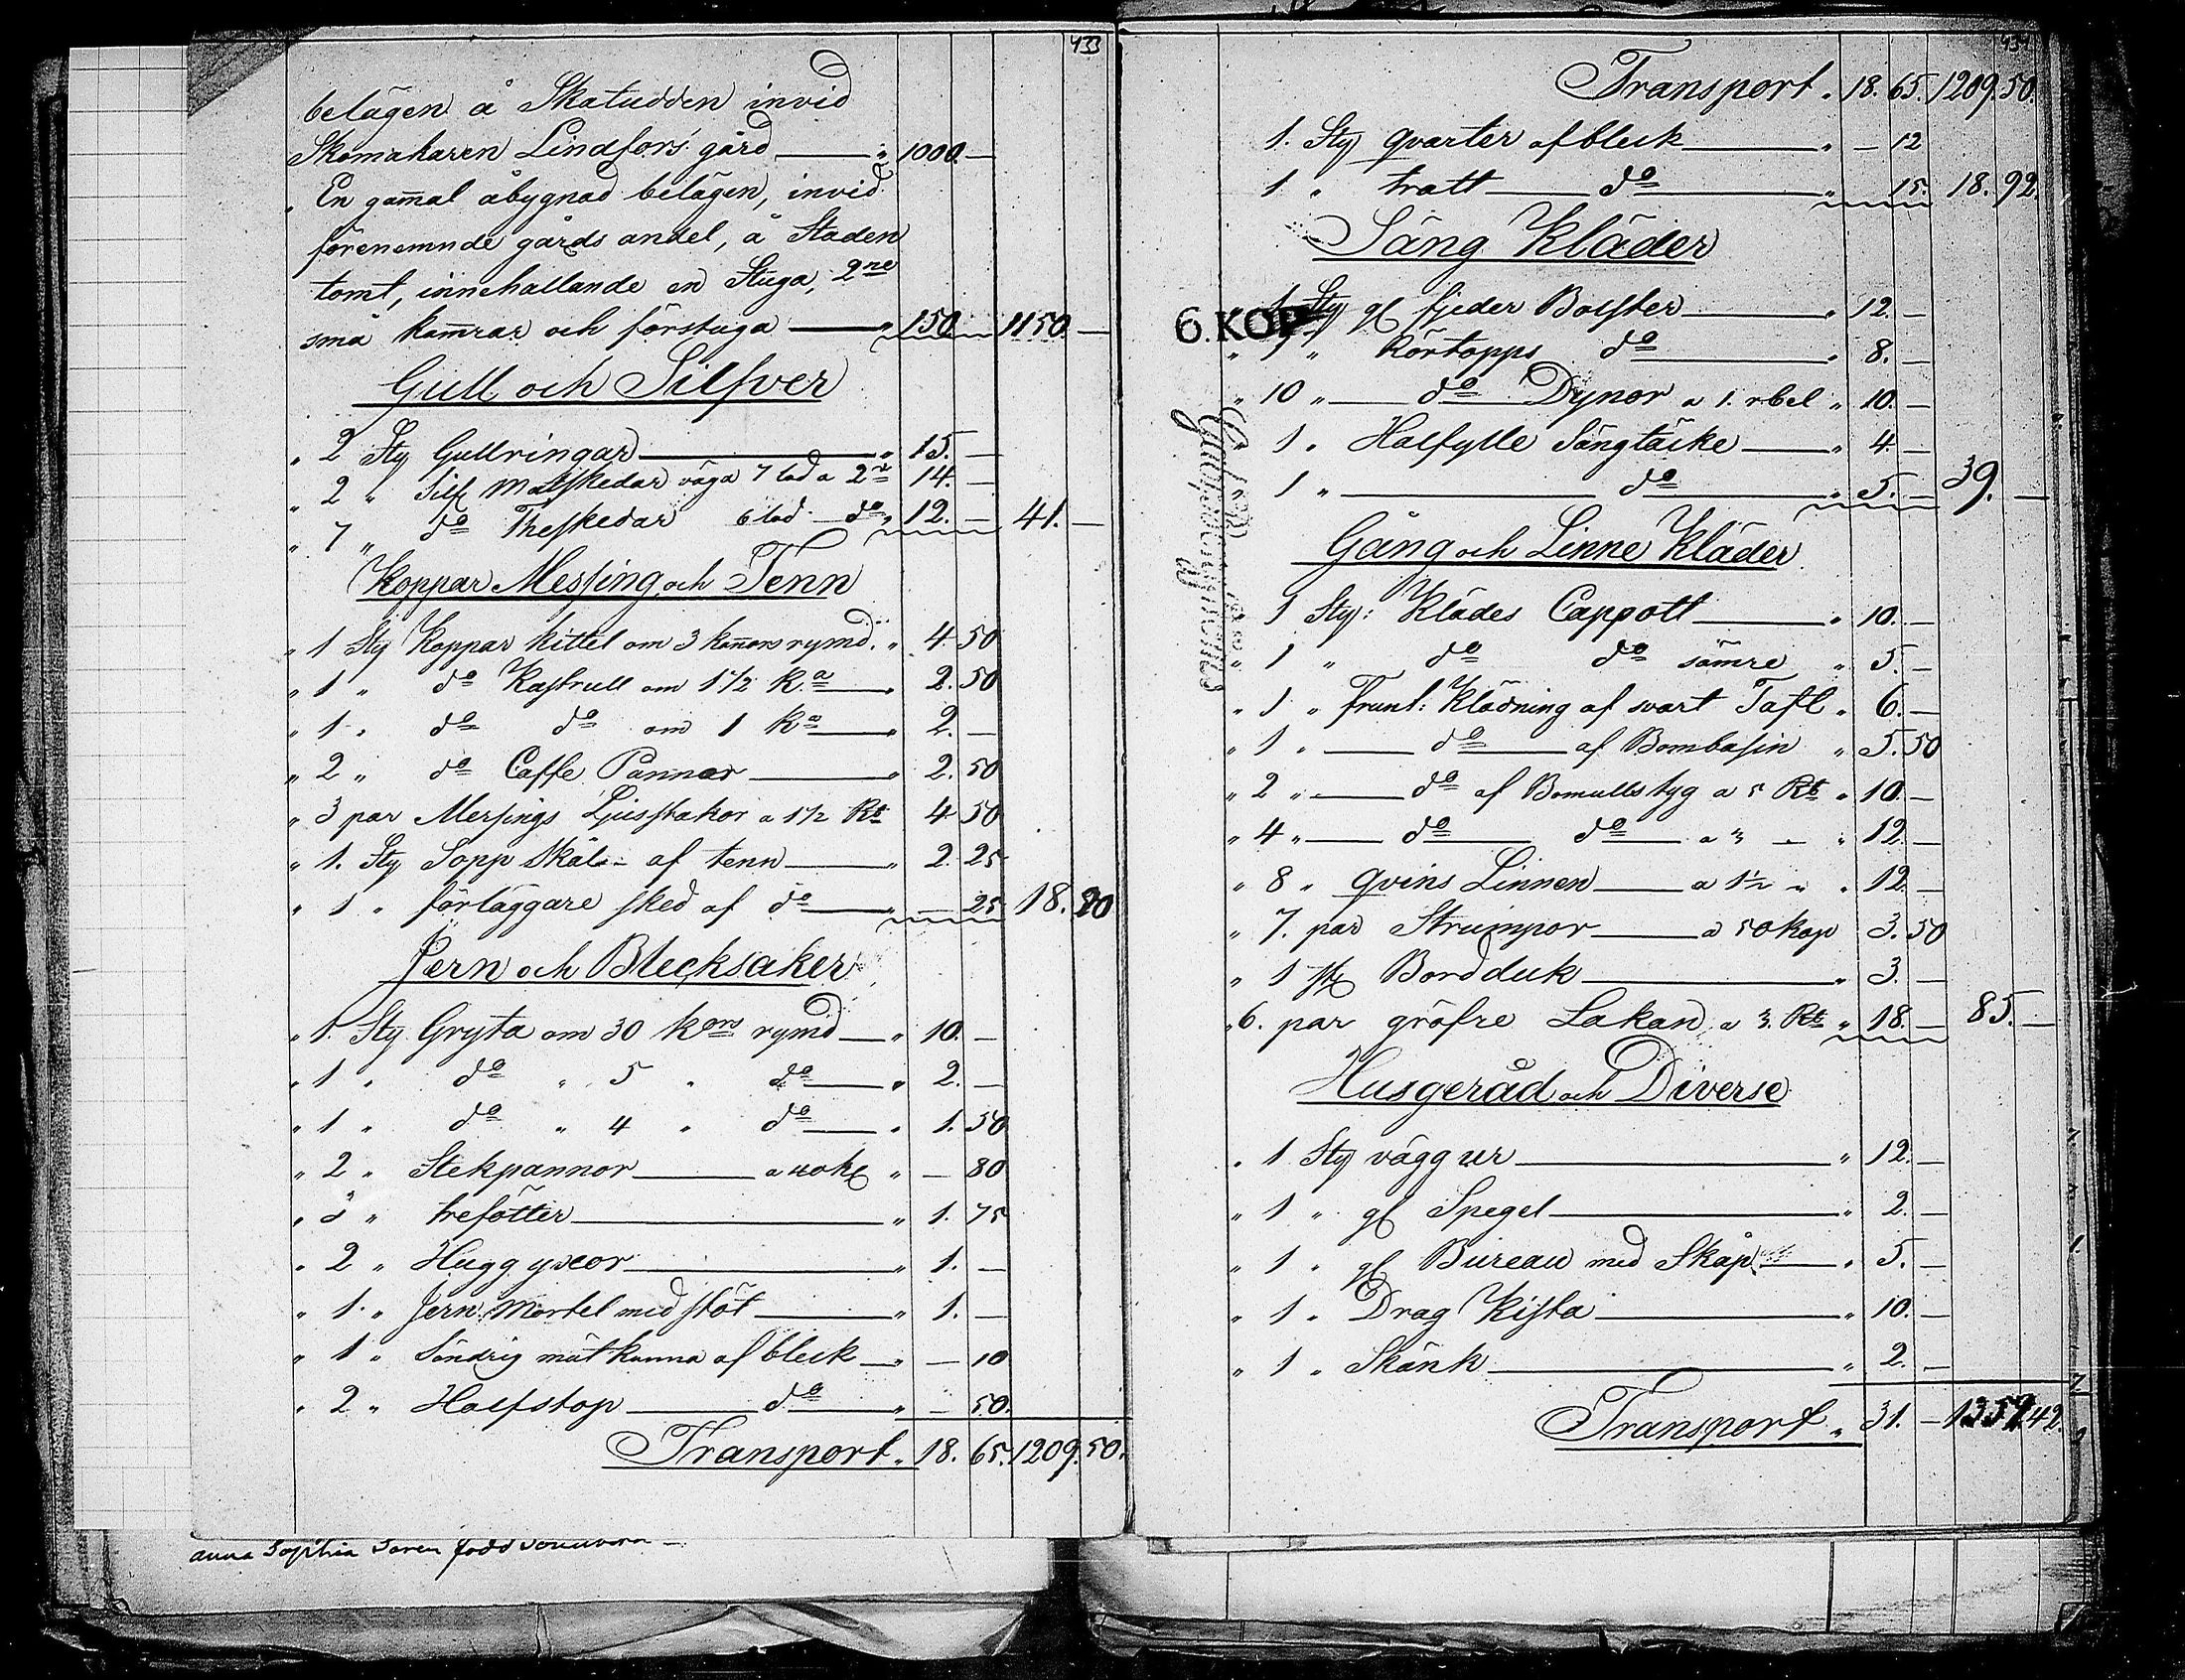 433
belägen å Skatudden invid
Skomakaren Lindfors' gård " 1000. —
" En gam̄al åbygnad belägen, invid
förenemnde gårds andel, å Staden
tomt, innehallande en Stuga, 2ne
små kam̄rar och förstuga " 150 — 1150. —
Gull och Silfver
" 2 Sty Gullringar " 15. —
" 2 " Silf Matskedar väga 7 lod a 2r 14. —
" 7 " do Theskedar 6 lod — do " 12. — 41. —
Koppar Messing och Tenn
" 1 Sty Koppar kittel om 3 kan̄ors rymd. " 4. 50
" 1 " do Kastrull om 1 1/2 Ka " 2. 50
" 1 " do do om 1 Ka " 2. —
" 2 " do Caffe Pannor " 2. 50
" 3 par Messings Ljusstakor a 1 1/2 Rb 4 50
" 1. Sty Sopp Skål af tenn " 2. 25
" 1 " förläggare sked af do " — 25 18. 50
Jern och Blecksaker
" 1. Sty Gryta om 30 Kors rymd " 10. —
" 1 " do " 5 " do " 2. —
" 1 " do " 4 " do " 1. 50
" 2 " Stekpannor a 40 k " — 80
" 3 " trefötter " 1. 75
" 2 " Hugg yxor " 1. —
" 1 " Jern Mortel med stöt " 1. —
" 1 " Söndrig måt kanna af bleck " — 10
" 2 " Halfstop do " — 50.
Transport. 18. 65. 1209. 50.
anna Sophia
434
Transport. 18. 65. 1209. 50.
1. Sty qvarter af bleck " — 12
1 " tratt do " 15. 18. 92.
Säng Kläder
6. KOP
1 Sty gl fjeder Bolster " 12. —
" 1 " Körtopps do " 8. —
" 10 " do Dynor a 1. rbel " 10. —
" 1 " Halfylle Sängtäcke " 4. —
1 " do " 5. — 39. —
Gång och Linne Kläder
1 Sty: Klädes Cappott " 10. —
" 1 " do do sämre " 5. —
" 1 " frunt: Klädning af svart Taft " 6. —
" 1 " do af Bombasin " 5. 50
" 2 " do af Bomulls tyg a 5 Rb " 10. —
" 4 " do do a 3 — " 12. —
" 8 " qvins Linnen a 1 1/2 " " 12. —
" 7. par Strumpor a 50 kop 3. 50
" 1 st Bordduk " 3. —
" 6. par gröfre Lakan a 3. Rb " 18. — 85. —
Husgeråd och Diverse
" 1 Sty vägg ur " 12. —
" 1 " gl Spegel " 2. —
" 1 " gl Bureau med Skåp " 5. —
" 1 " Drag Kista " 10. —
" 1 " Skänk " 2. —
Transport " 31. — 1352 42.